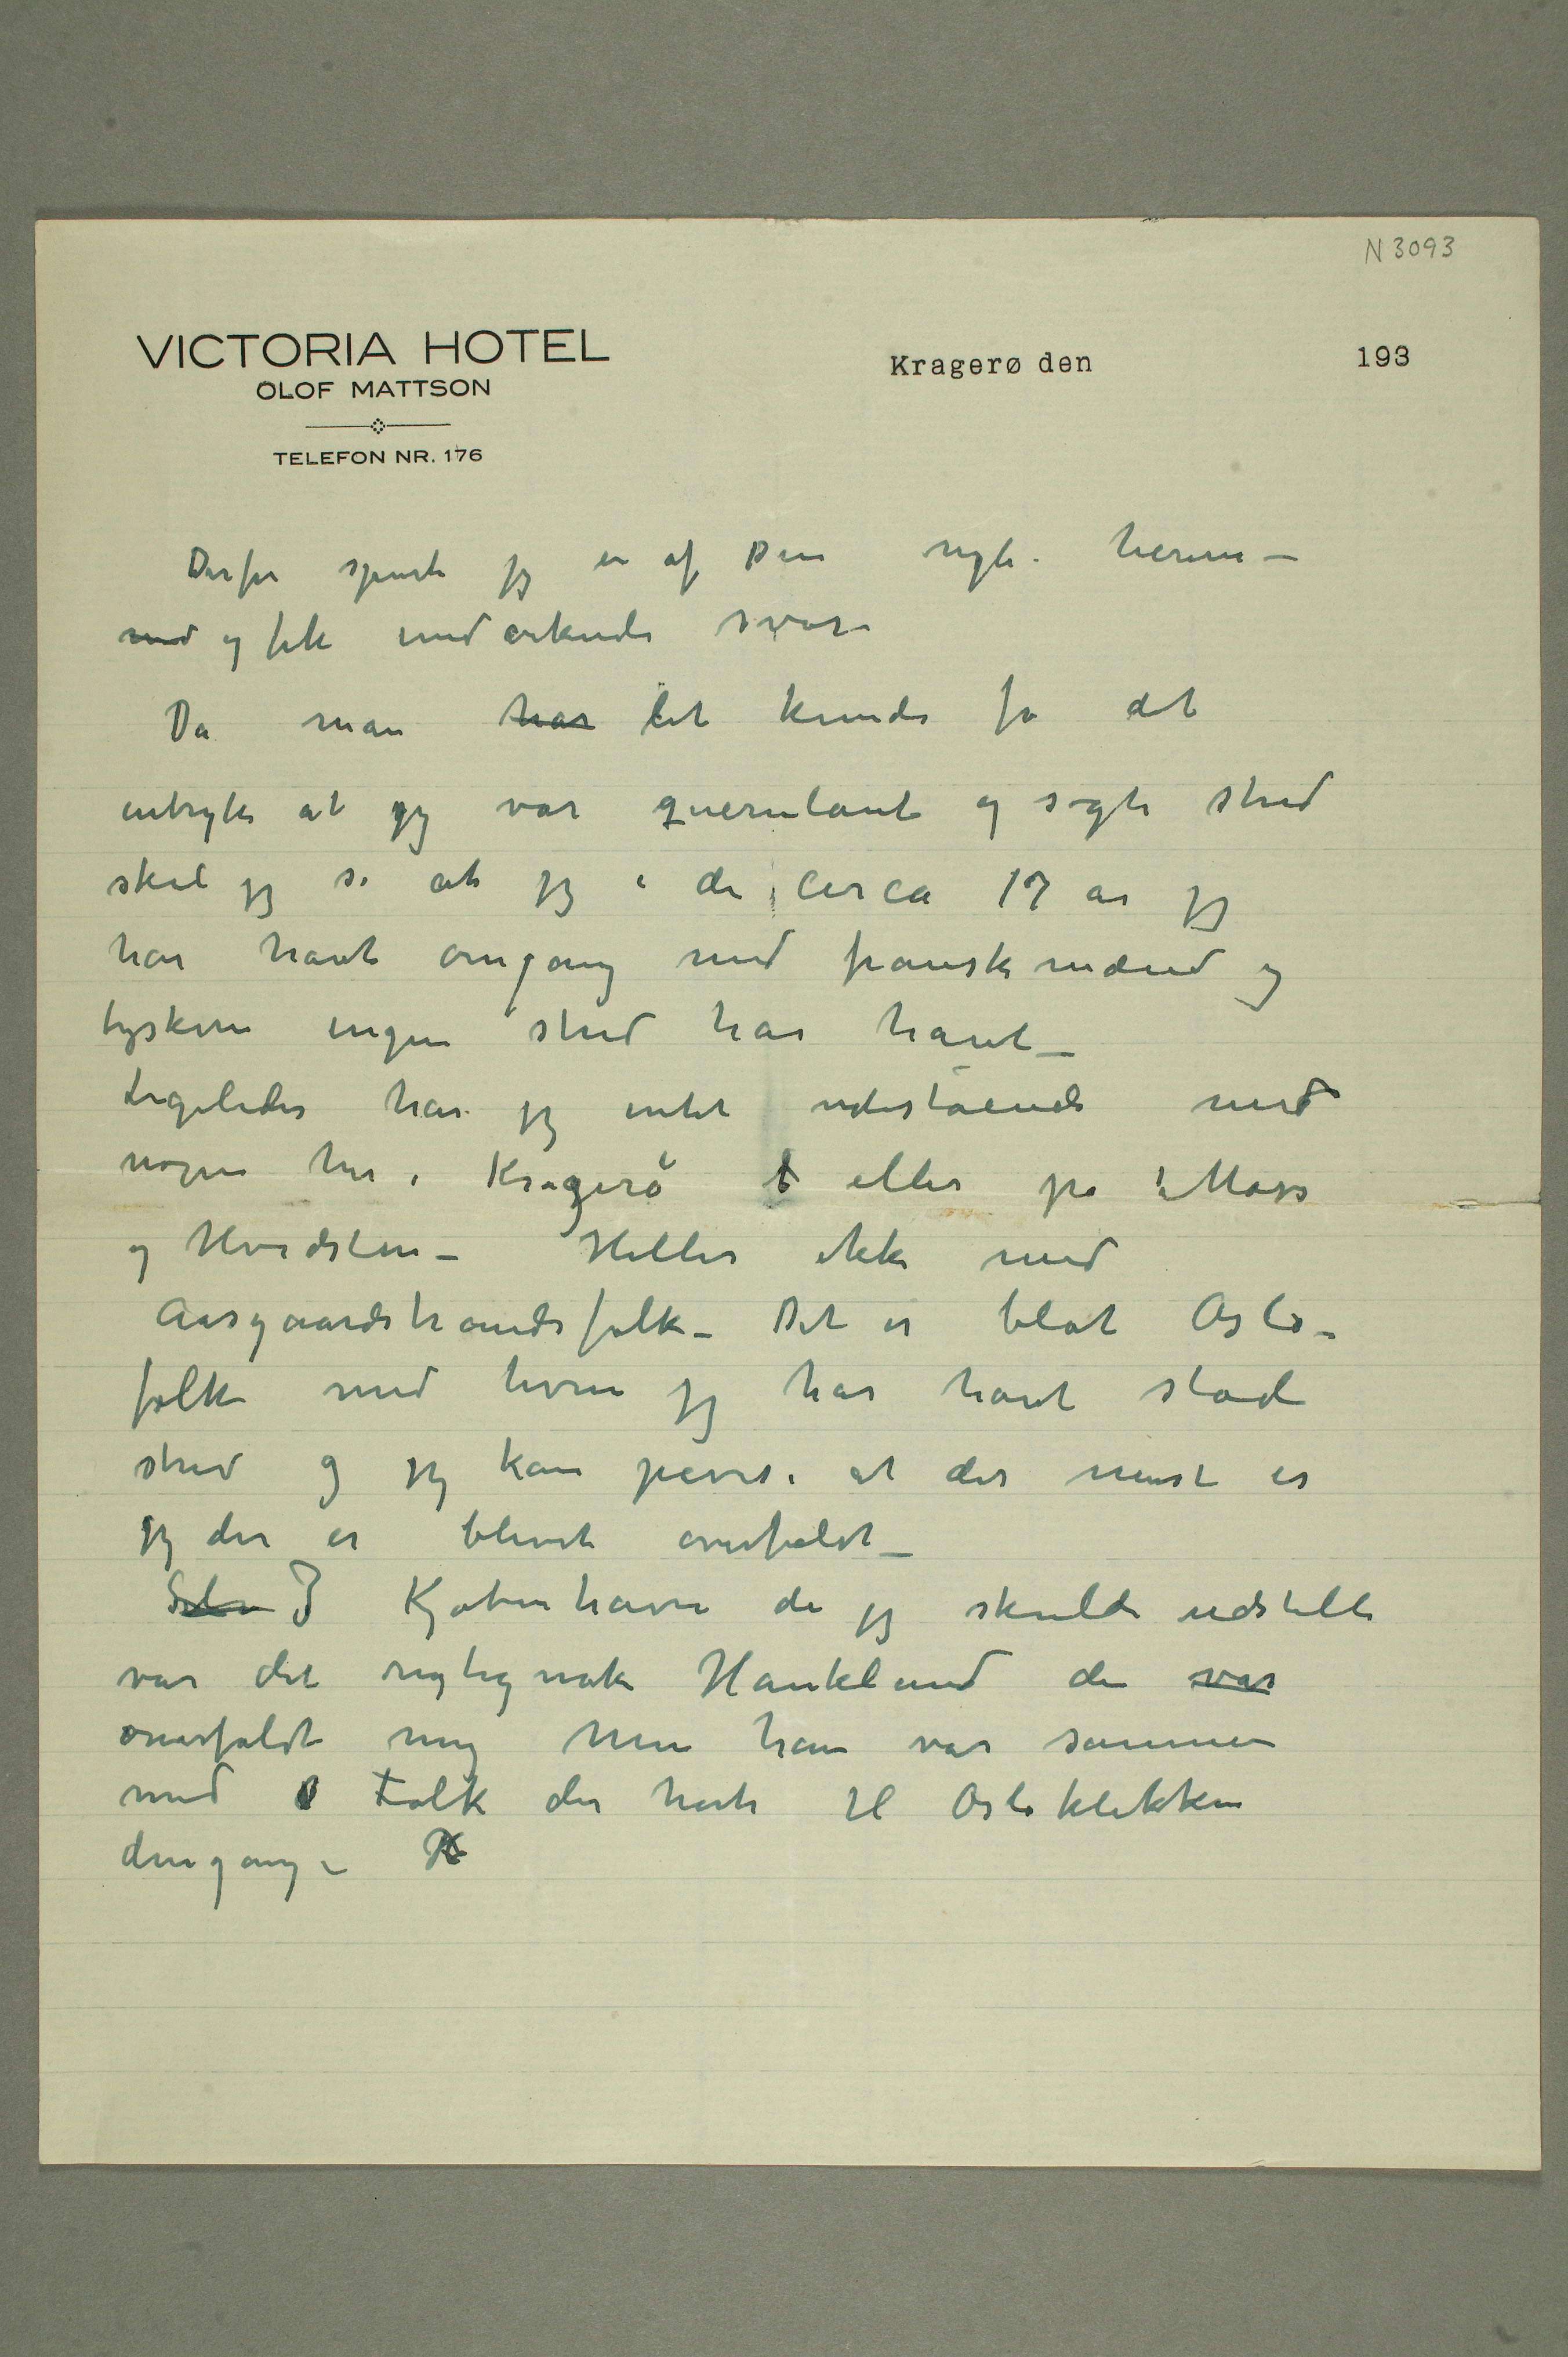 N 3093
VICTORIA HOTEL
OLOF MATTSON
TELEFON NR. 176
Kragerø den 193
Derfor spurte jeg en af Dem
med og fik undvikende svar
Da man har let kunde få det
intryk at jeg var querulant og søgte strid
skal jeg si at jeg i de circa 17 år jeg
har havt omgang med franskmænd og
tyskere ingen strid har havt –
Ligeledes har jeg intet udestående med
nogen her i Kragerø eller på Moss
og Hvidsten – Heller ikke med
Aasgaardstrandsfolk – Det er blot Oslo-
folk med hvem jeg har havt stadi
strid og jeg kan påvise at det mest er
jeg der er blevet overfaldt –
Selv I Kjøbenhavn da jeg skulde udstille
var det rigtignok Haukland der var
overfaldt mig Men han var sammen
med Folk der hørte til Osloklikken
dengang –